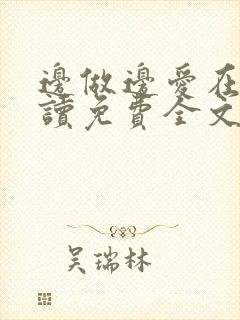 邊做邊愛在
讀免費全文
吴瑞林